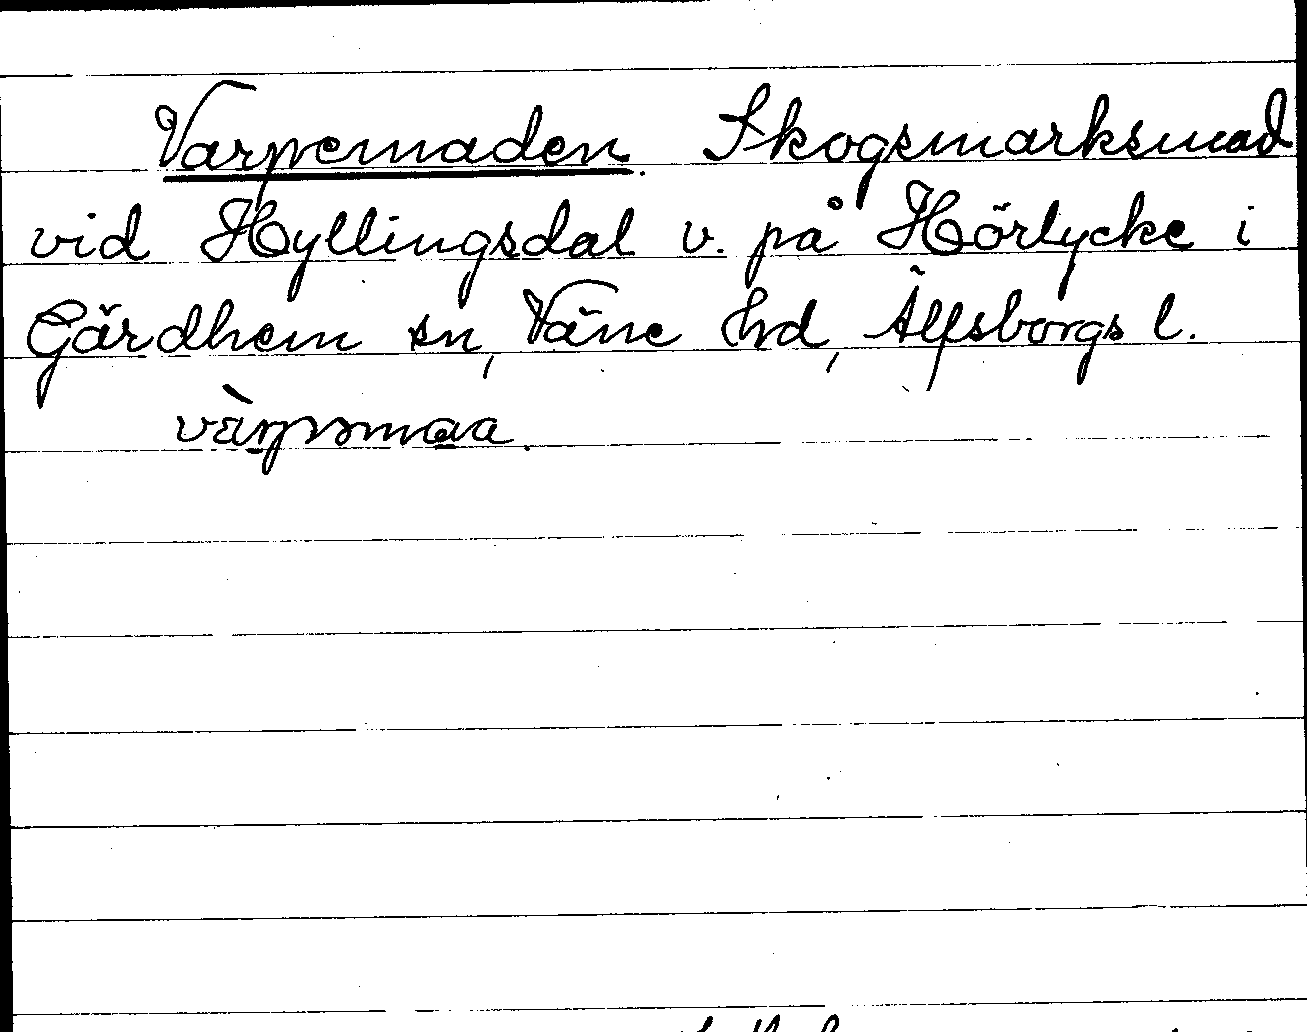 Varpemaden. Skogsmarksmad
vid Hyllingsdal v. på Hörlycke i
Gärdhem sn, Väne hd, Älfsborgs l.